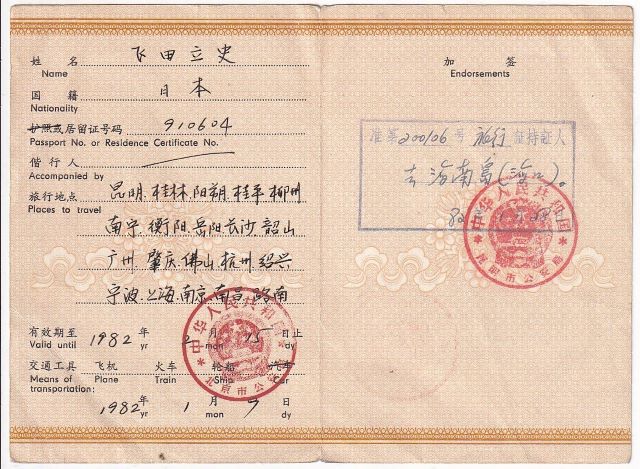 姓 名 飞田立史
Name
国 籍 日本
Nationality
护照或居留证号码 910604
Passport No. or Residence Certificate No.
偕行人
Accompanied by
旅行地点 昆明.桂林.阳朔.桂平.柳州
Places to travel
南宁.衡阳.岳阳.长沙.韶山
广州.肇庆.佛山.杭州.绍兴
宁波.上海.南京.南昌.
有效期至 1982 年 2 月 15 日止
Valid until yr mon dy
交通工具 飞机 火车 轮船 汽车
Means of transportation: Plane Train Ship Car
1982 年 1 月 7 日
yr mon dy
中华人民共和国
北京市公安局
加 签
Endorsements
准第200106号 旅行 证持证人
去海南岛(海口)。
82
中华人民共和国
昆明市公安局